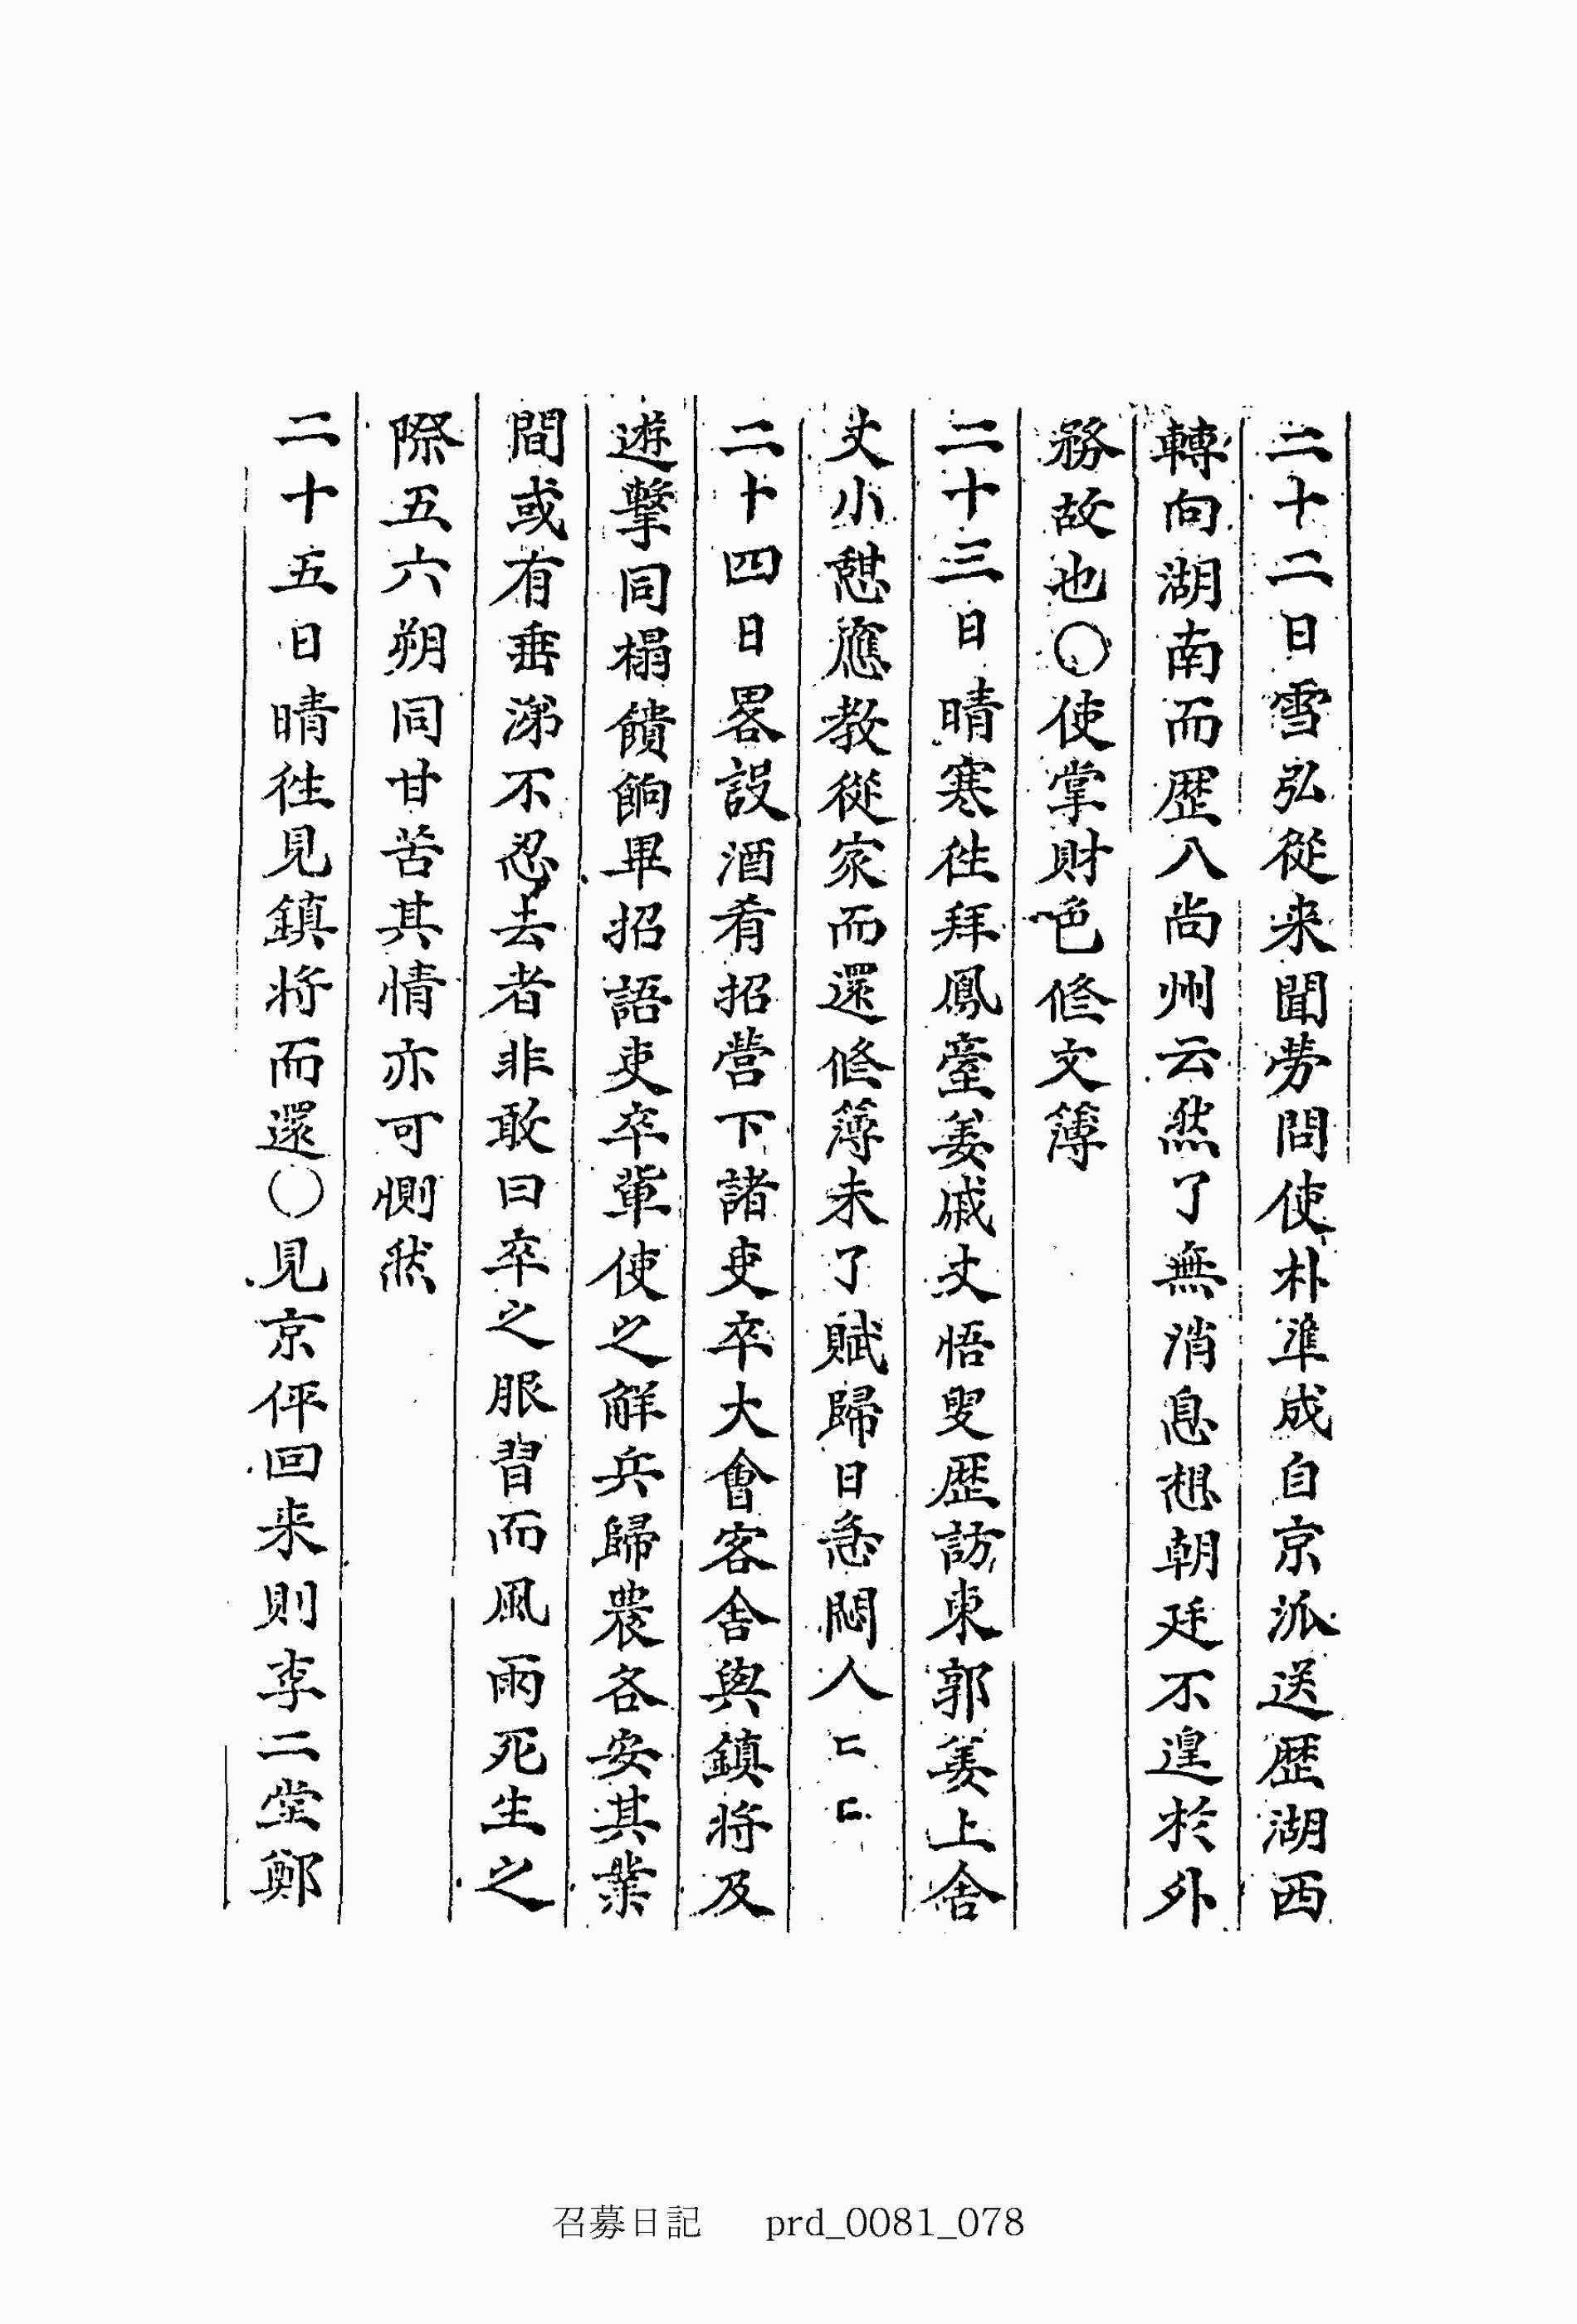 二十二日雪弘從来聞勞問使朴準成自京派送歷湖西
轉向湖南而歷入尙州云然了無消息想朝廷不遑於外
務故也〇使掌財色修文簿
二十三日晴寒徃拜鳳臺姜戚丈悟叟歷訪東郭姜上舍
丈小憇應敎從家而還修簿未了賦歸日急悶人〻〻
二十四日畧設酒肴招營下諸吏卒大會客舍與鎭將及
遊擊同榻饋餉畢招語吏卒軰使之觧兵歸農各安其業
間或有垂涕不忍去者非敢曰卒之服習而風雨死生之
際五六朔同甘苦其情亦可惻然
二十五日晴徃見鎭將而還〇見京伻回来則李二堂鄭
召募日記 prd_0081_078